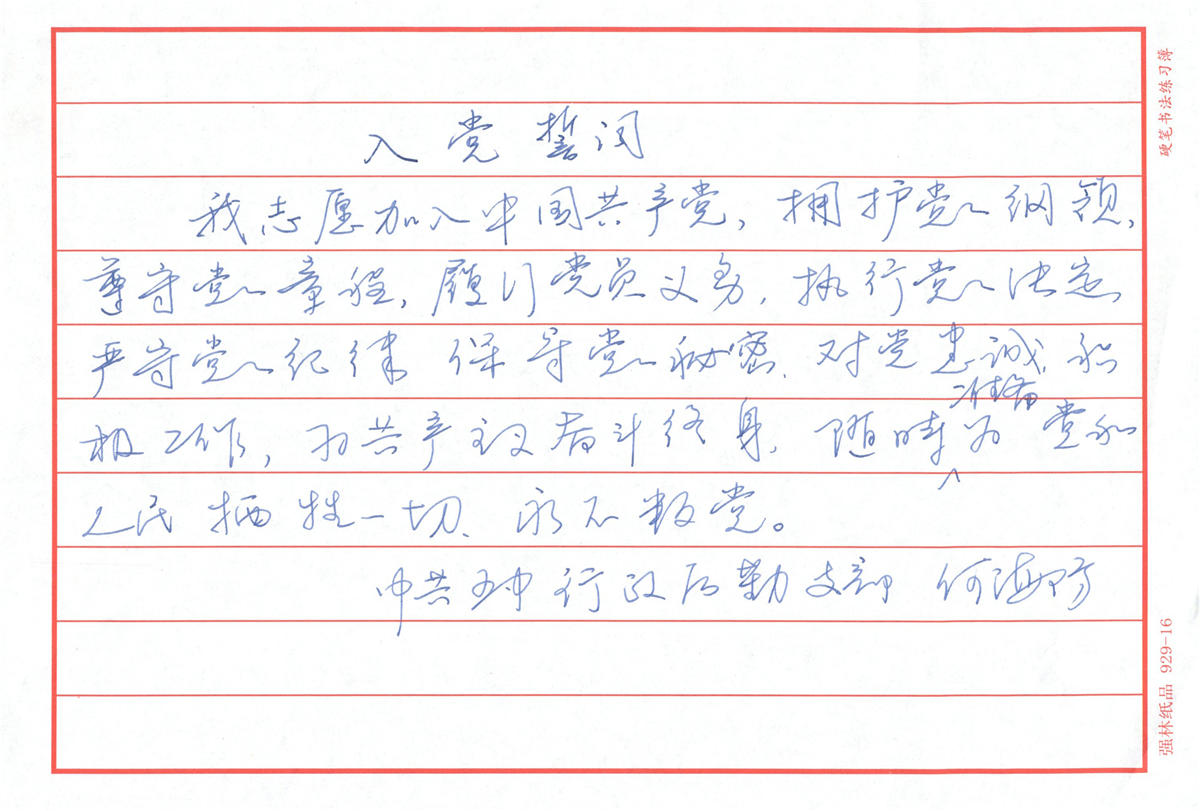 入党誓词
我志愿加入中国共产党,拥护党的纲领,
尊守党的章程,履行党员义务,执行党的决定,
严守党的纪律 保守党的秘密、对党忠诚,积
准备
极工作,为共产主义奋斗终身,随时为党和
人民牺牲一切、永不叛党。
中共五中行政后勤支部 何海
硬笔书法练习簿
强林纸品 929-16